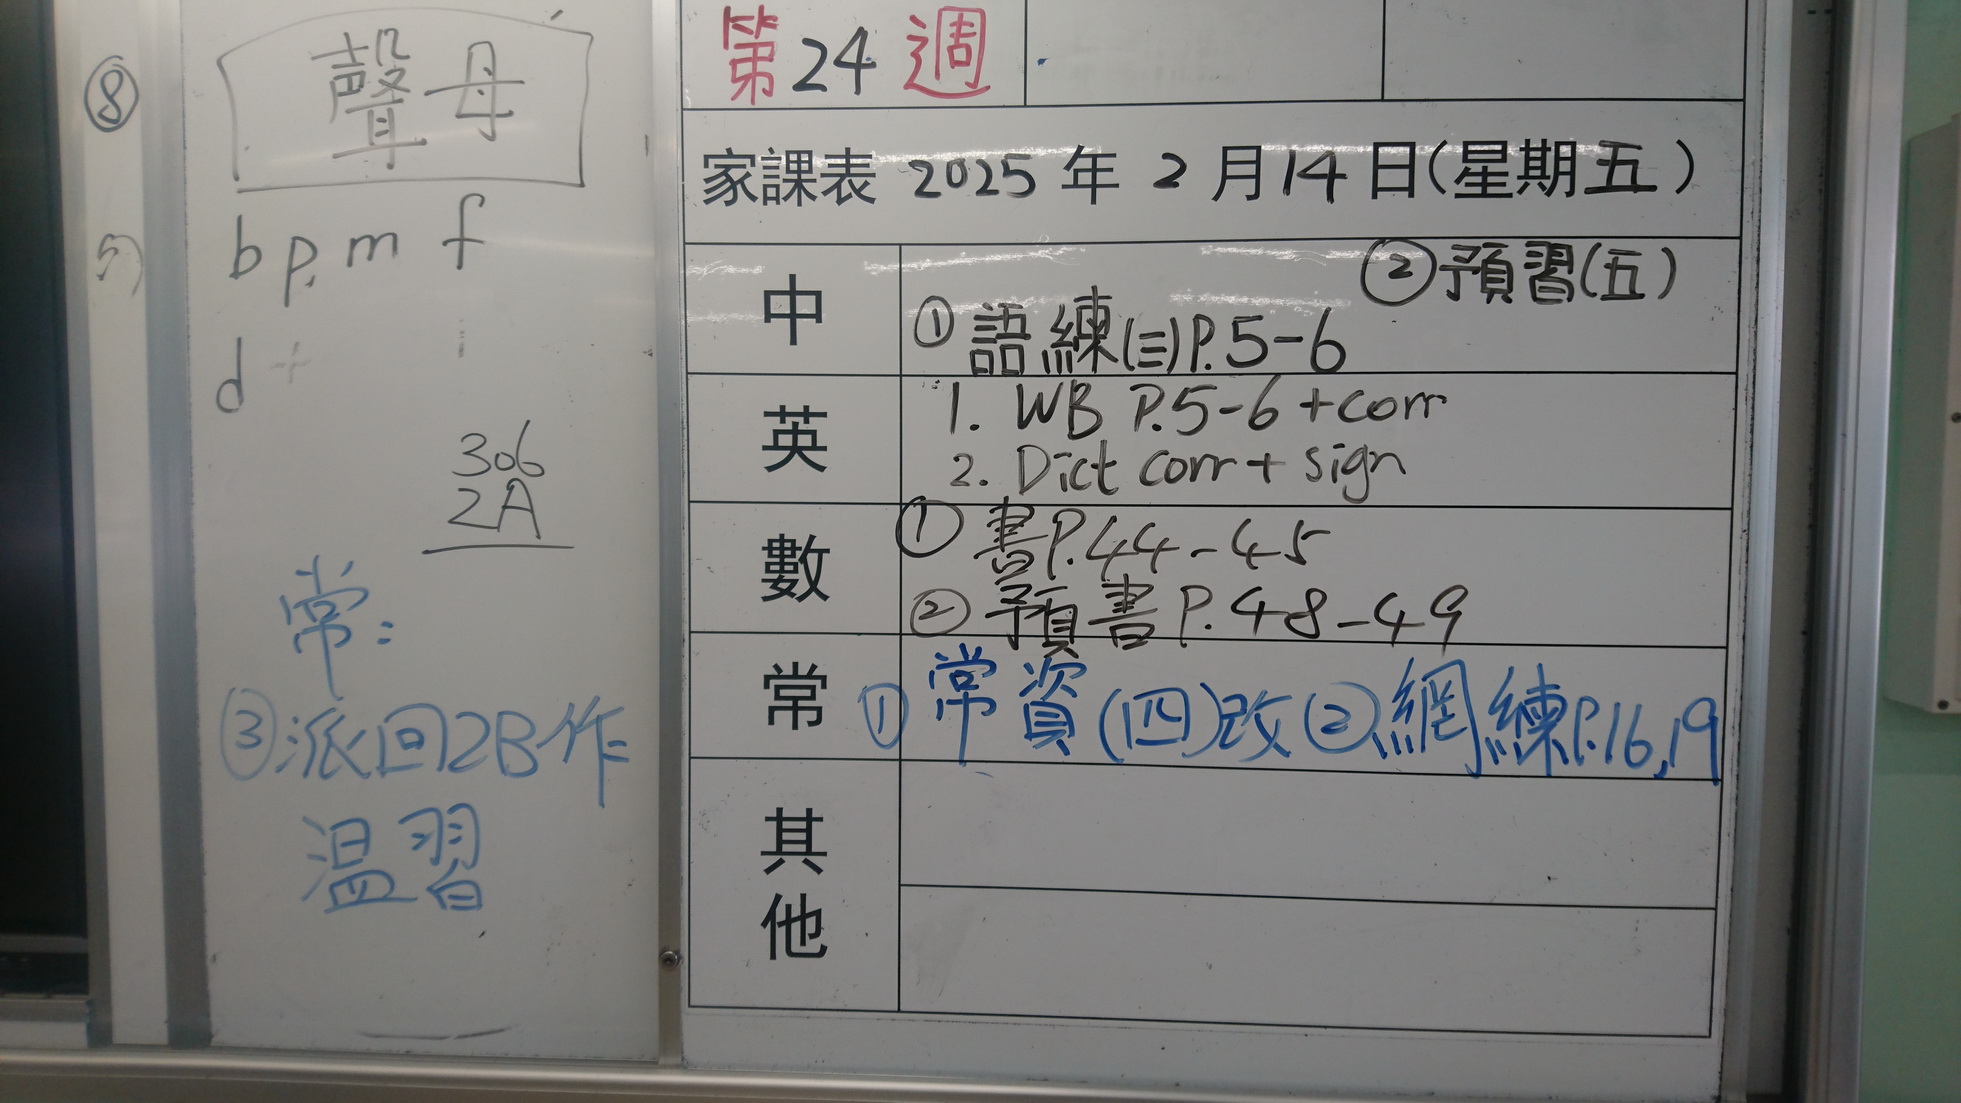 ⑧
聲母
b p m f
d t
306
2A
常:
③派回2B作
温習
第24週
家課表 2025年2月14日(星期五)
中
②預習(五)
①語練(三)P.5-6
英
1. WB P.5-6 +corr
2. Dict corr + sign
數
①書P.44-45
②預書P.48-49
常
①常資(四)改②網練P.16,19
其他